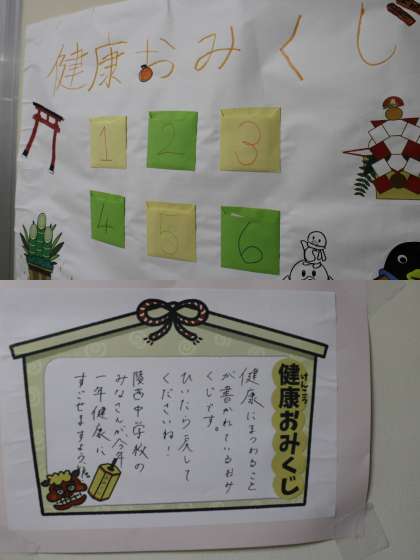 健康おみくじ
1
2
3
4
5
6
健康おみくじ
けんこう
健康にまつわること
が書かれているおみ
くじです。
ひいたら戻して
くださいね！
陵西中学校の
みなさんが、今年
一年健康に
すごせますように